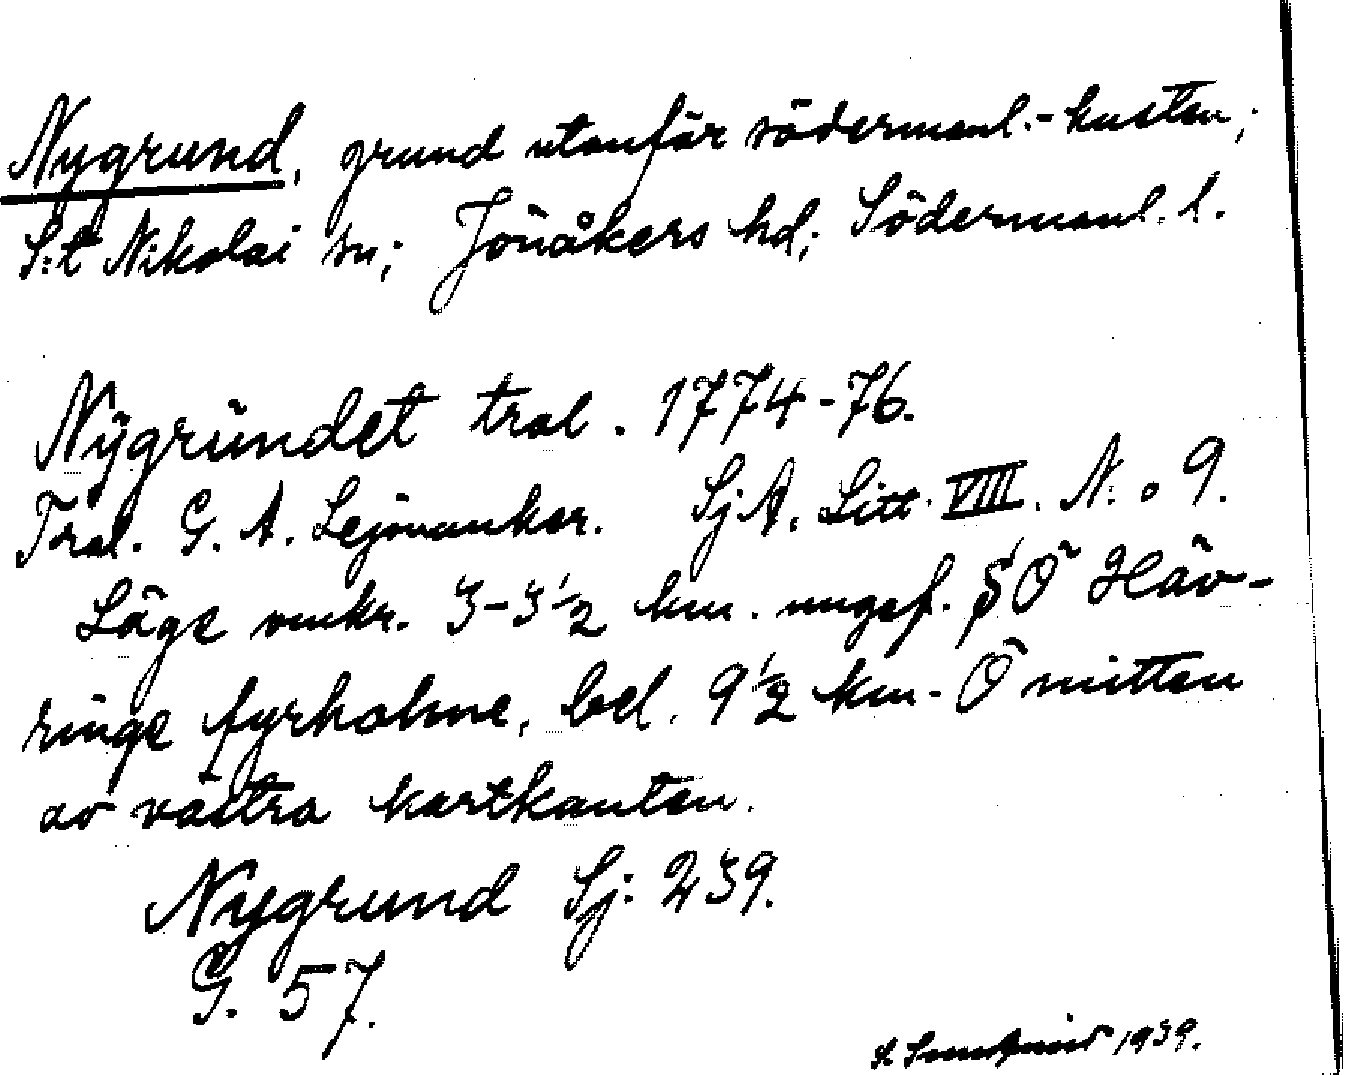 Nygrund, grund utanför södermanl.-kusten;
S:t Nikolai sn; Jönåkers hd; Södermanl. l.
Nÿgründet tral. 1774-76.
Tral. G. A. Lejonanker. SjA. Litt. VIII. N:o 9.
Läge omkr. 3-3 1/2 km. ungef. SÖ Häv-
ringe fyrholme, bel. 9 1/2 km. Ö mitten
av västra kartkanten.
Nygrund Sj. 239.
G. 57.
1939.